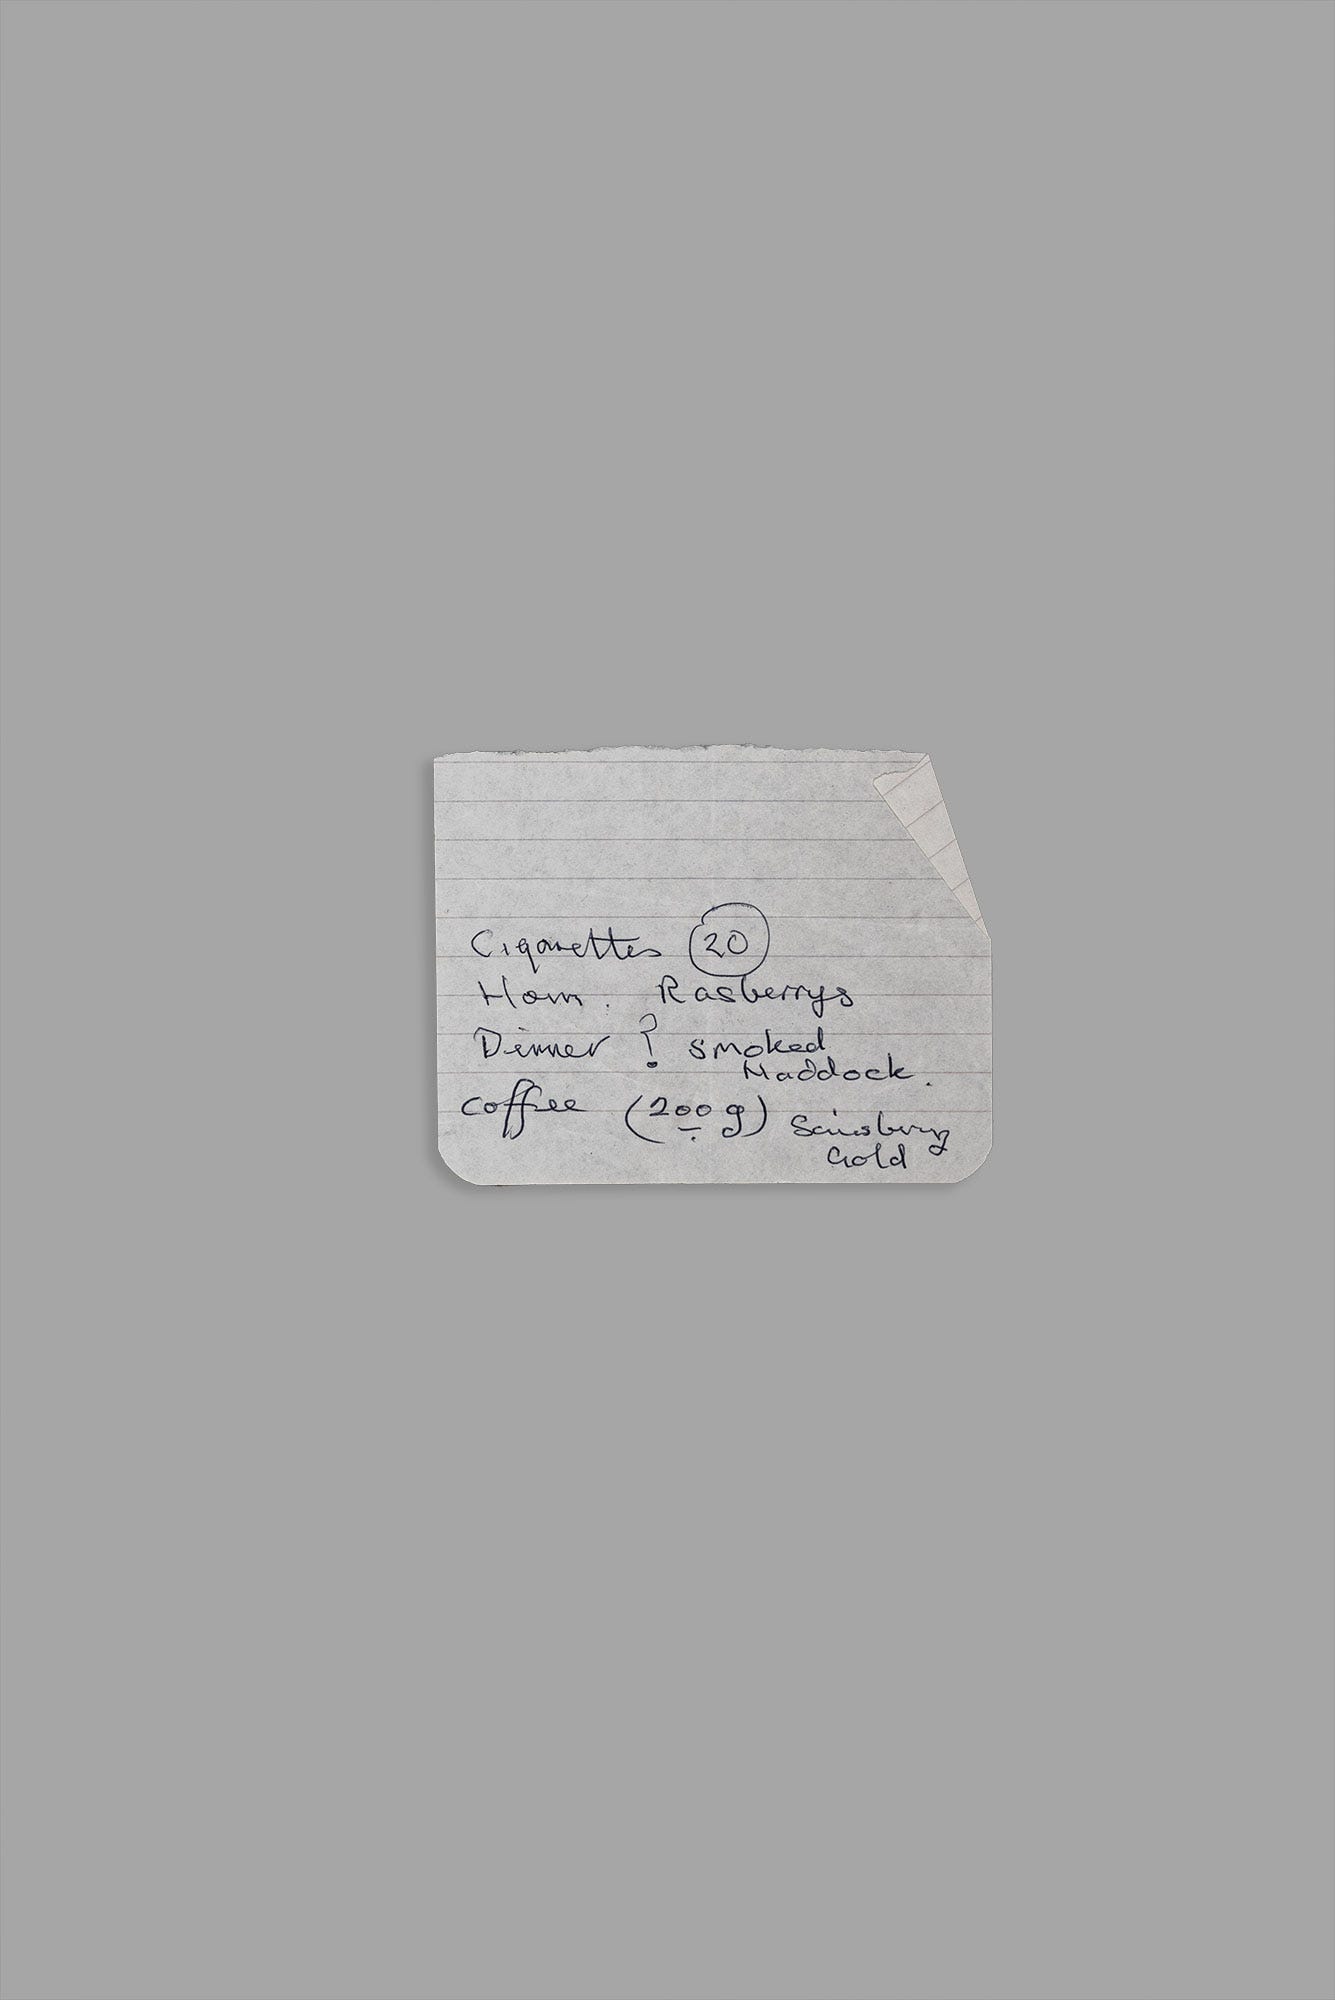 Cigarettes 20
Ham. Rasberrys
Dinner ? smoked
Haddock.
coffee (200 g) Sainsbury
Gold